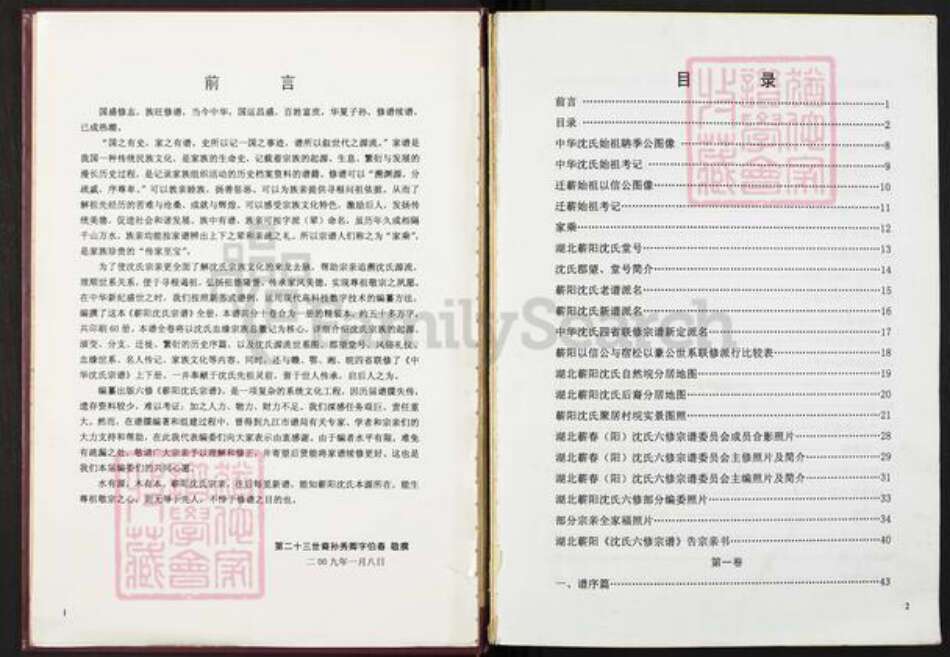 前 言
国盛修志，族旺修谱，当今中华，国运昌盛，百姓富庶，华夏子孙，修谱续谱，
已成热潮。
“国之有史，家之有谱，史所以记一国之事迹，谱所以叙世代之源流。”家谱是
我国一种传统民族文化，是家族的生命史，记载着宗族的起源、生息、繁衍与发展的
漫长历史过程，是记录家族组织活动的历史档案资料的谱籍。修谱可以“溯渊源、分
疏戚、序尊卑。”可以敦亲睦族，扬善惩恶，可以为族亲提供寻根问祖依据，从而了
解祖先经历的苦难与沧桑、成就与辉煌，可以感受宗族文化特色，激励后人，发扬传
统美德，促进社会和谐发展。族中有谱，族亲可按字派（辈）命名，虽历年久或相隔
千山万水，族亲均能按家谱辨出上下之辈和亲疏之礼。所以宗谱人们称之为“家乘”，
是家族珍贵的“传家至宝”。
为了使沈氏宗亲更全面了解沈氏宗族文化的来龙去脉，帮助宗亲追溯沈氏源流，
理顺世系关系，便于寻根谒祖，弘扬祖德隆誉，传承家风美德，实现尊祖敬宗之夙愿。
在中华新纪盛世之时，我们按照新形式谱例，运用现代高科技数字技术的编纂方法，
编撰了这本《蕲阳沈氏宗谱》全册，本谱共分十卷立为一册的精装本，约五十多万字，
共印刷60册，本谱全卷将以沈氏血缘宗族总量记为核心，详细介绍沈氏宗族的起源、
演变、分支、迁徙、繁衍的历史序篇，以及沈氏源流世系图、郡望堂号、风俗礼仪、
血缘世系、名人传记、家族文化等内容。同时，还与赣、鄂、湘、皖四省联修了《中
华沈氏宗谱》上下册，一并奉献于沈氏先祖灵前，留于世人传承，启后人之为。
编纂出版六修《蕲阳沈氏宗谱》，是一项复杂的系统文化工程，因历届谱牒失传，
遗存资料较少，难以考证；加之人力、物力、财力不足，我们深感任务艰巨，责任重
大。然而，在谱牒编著和组建过程中，曾得到九江市谱局有关专家、学者和宗亲们的
大力支持和帮助，在此我代表编委们向大家表示由衷感谢。由于编者水平有限，难免
有疏漏之处，敬请广大宗亲予以理解和修正，并寄望后贤能将家谱续修更好。这也是
我们本届编委们的共同心愿。
水有源，木有本，蕲阳沈氏宗亲，往后每览新谱，能知蕲阳沈氏本源所在，能生
尊祖敬宗之心，则无辱于先人，不悖于修谱之目的也。
第二十三世裔孙秀卿字伯春 敬撰
二00九年一月八日
1
目 录
前言 1
目录 2
中华沈氏始祖聃季公图像 8
中华沈氏始祖考记 9
迁蕲始祖以信公图像 10
迁蕲始祖考记 11
家乘 12
湖北蕲阳沈氏堂号 13
沈氏郡望、堂号简介 14
蕲阳沈氏老谱派名 15
蕲阳沈氏新谱派名 16
中华沈氏四省联修宗谱新定派名 17
蕲阳以信公与宿松以兼公世系联修派行比较表 18
湖北蕲阳沈氏自然垸分居地图 19
湖北蕲阳沈氏后裔分居地图 20
蕲阳沈氏聚居村垸实景图照 21
湖北蕲春（阳）沈氏六修宗谱委员会成员合影照片 28
湖北蕲春（阳）沈氏六修宗谱委员会主修照片及简介 29
湖北蕲春（阳）沈氏六修宗谱委员会主编照片及简介 31
湖北蕲阳沈氏六修部分编委照片 33
部分宗亲全家福照片 34
湖北蕲阳《沈氏六修宗谱》告宗亲书 40
第一卷
一、谱序篇 43
2
FamilySearch